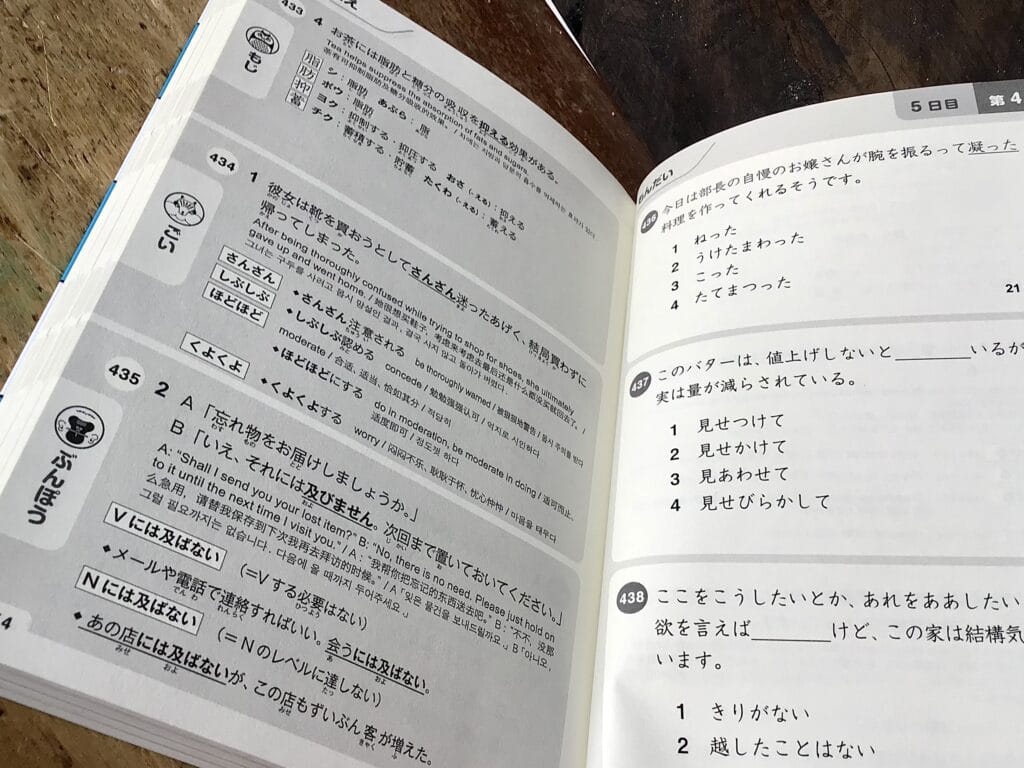 え
433
4
お茶には脂肪と糖分の吸収を抑える効果がある。
Tea helps suppress the absorption of fats and sugars.
もじ
脂 シ：脂肪 あぶら：脂
肪 ボウ：脂肪
抑 ヨク：抑制する・抑圧する おさ（-える）：抑える
蓄 チク：蓄積する・貯蓄 たくわ（-える）：蓄える
434
1
ごい
彼女は靴を買おうとしてさんざん迷ったあげく、結局買わずに
帰ってしまった。
After being thoroughly confused while trying to shop for shoes, she ultimately
gave up and went home. /
さんざん ◆さんざん注意される be thoroughly warned /
しぶしぶ ◆しぶしぶ認める concede / 勉勉强强认可 / 억지로 시인하다
ほどほど ◆ほどほどにする do in moderation, be moderate in doing / 适可而止、
moderate / 合适，适当，恰如其分 / 적당히
适度即可 / 정도껏 하다
くよくよ ◆くよくよする worry / 闷闷不乐、耿耿于怀、忧心忡忡 / 마음을 태우다
435
2
ぶんぽう
A「忘れ物をお届けしましょうか。」
B「いえ、それには及びません。次回まで置いておいてください。」
A: “Shall I send you your lost item?” B: “No, there is no need. Please just hold on
to it until the next time I visit you.” / A：“我帮你把忘记的东西送去吧。” B：“不不，没那
么急用，请替我保存到下次我再去拜访的时候。” / A「잊은 물건을 보내드릴까요.」 B「아니오,
그럴 필요까지는 없습니다. 다음에 올 때까지 두어주세요.」
Vには及ばない （＝Vする必要はない）
◆メールや電話で連絡すればいい。会うには及ばない。
Nには及ばない （＝Nのレベルに達しない）
◆あの店には及ばないが、この店もずいぶん客が増えた。
4
5日目 第4
もんだい
436
今日は部長の自慢のお嬢さんが腕を振るって凝った
料理を作ってくれるそうです。
1 ねった
2 うけたまわった
3 こった
4 たてまつった
21
437
このバターは、値上げしないと＿＿＿＿いるが
実は量が減らされている。
1 見せつけて
2 見せかけて
3 見あわせて
4 見せびらかして
438
ここをこうしたいとか、あれをああしたい
欲を言えば＿＿＿＿けど、この家は結構気
います。
1 きりがない
2 越したことはない